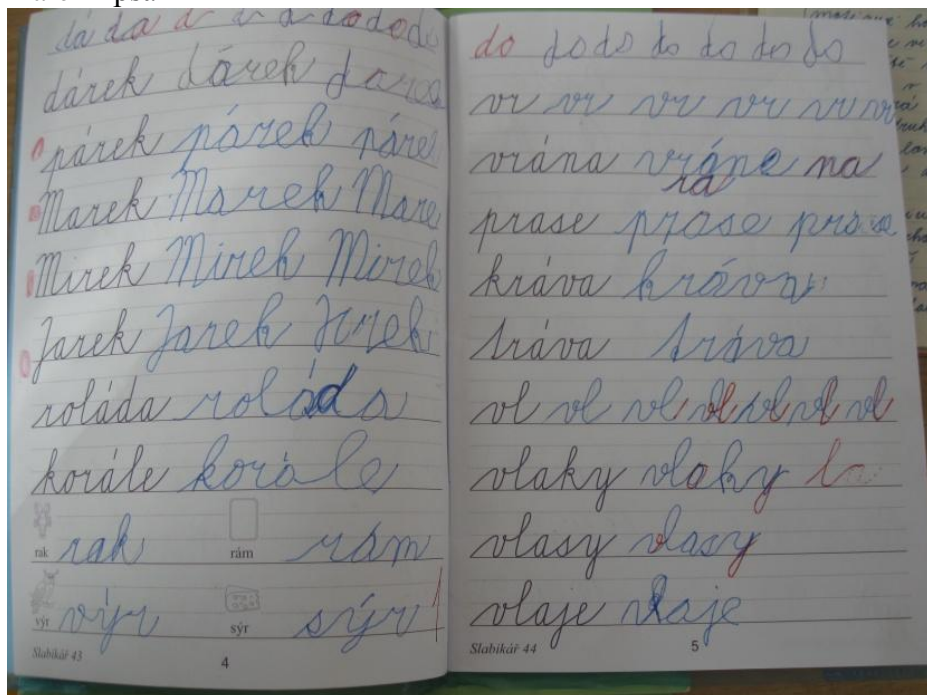 da da a a a a do do do
dárek dárek
párek párek páre
Marek Marek Mare
Mirek Mirek Mirek
Jarek Jarek Jarek
roláda roláda
korále korále
rak rak rám rám
výr výr sýr sýr
Slabikář 43
4
do do do do do do do
vr vr vr vr vr vr
vrána vrána na
ra
prase prase prase
kráva kráva
tráva tráva
vl vl vl vl vl vl vl
vlaky vlaky la
vlasy vlasy
vlaje vlaje
Slabikář 44
5